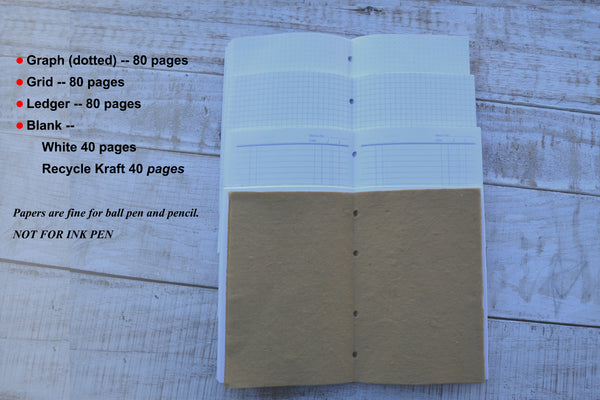 Graph (dotted) -- 80 pages
Grid -- 80 pages
Ledger -- 80 pages
Blank --
White 40 pages
Recycle Kraft 40 pages
Papers are fine for ball pen and pencil.
NOT FOR INK PEN